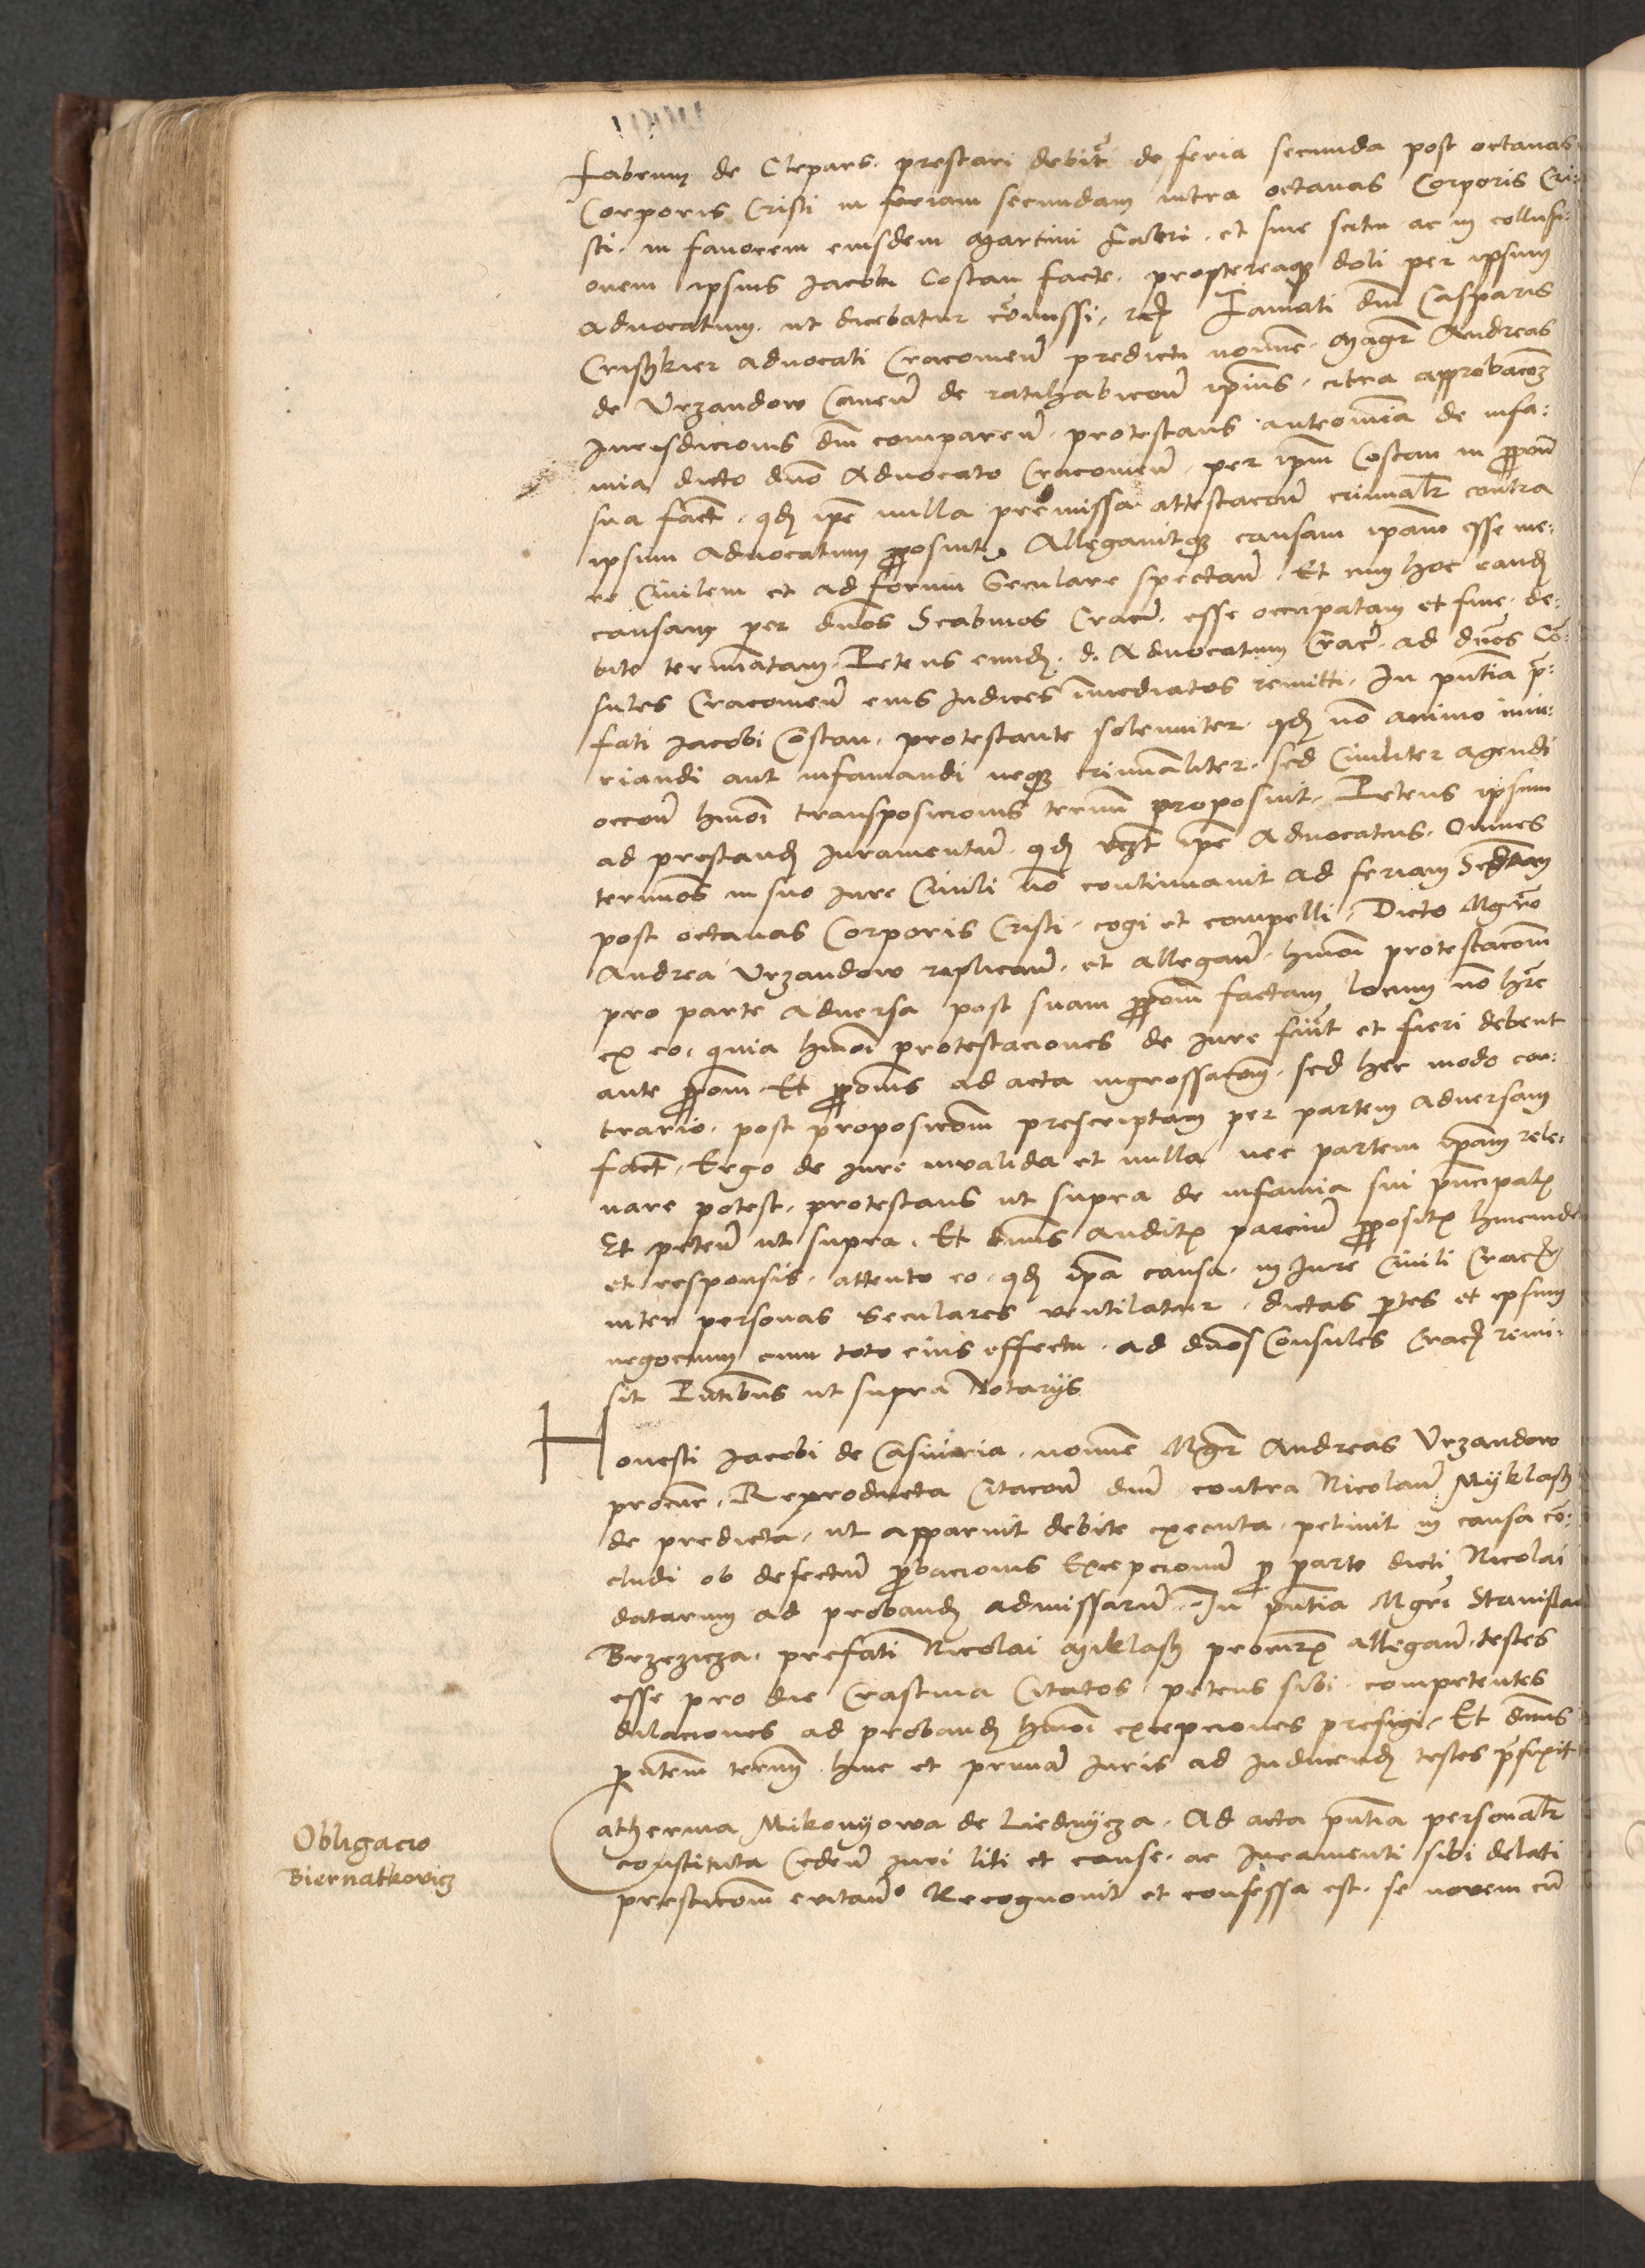 Fabrum de Clepars. prestari debit de feria secunda post octauas
Corporis Cristi in feriam secundam intra octauas Corporis Cri:
sti. in fauorem eiusdem Martini Fabri. et sine scitu ac in collusi:
onem ipsius Jacobi Costan facte. proptereaque doli per ipsum
aduocatum. ut dicebatur comissi. Famati dni Casparis
Crisker aduocati Cracouien predicti nomine. Magr Andreas
de Vrzandow Cauen de ratihabicon ipius. citra approbacoem
Jurisdicionis dni comparen. protestans anteomnia de infa:
mia dicto dno Aduocato Cracouien. per ipm Costan in propon
sua fact. qd ipe nulla premissa attestacon criminalr contra
ipsum aduocatum proposuit. Allegauitque causam ipam esse me:
re Ciuilem et ad forum Seculare spectan. Et cum hoc eand
causam per dnos Scabinos Crac. esse occupatam et fine de:
bito terminatam. Petens eund. d. Aduocatum Crac. ad dnos Co:
sules Cracouien eius Judices imediatos remitti. In pntia pre:
fati Jacobi Costan. protestante solenniter. qd no animo iniu:
riandi aut infamandi neque criminaliter. sed Ciuiliter agendi
occon hmoi transposicionis termini proposuit. Petens ipsum
ad prestand Juramentum. qd ipe Aduocatus. Omnes
terminos in suo Jure Ciuili no continuauit ad feriam Scdam
post octauas Corporis Cristi. cogi et compelli. Dicto Mgro
Andrea Vrzandow replican. et allegan. hmoi protestacom
pro parte aduersa post suam propom factam locum no hre
ex eo. quia hmoi protestaciones de Jure fiunt et fieri debent
ante propom. Et propomis ad acta ingrossacom. sed hec modo con:
trario. post proposicom prescriptam per partem aduersam
fact. Ergo de Jure inualida et nulla nec partem ipam rele:
uare potest. protestans ut supra de infamia sui principalis
Et peten ut supra. Et dnus auditis parcium propositis hincinde
et responsis. attento eo. qd ipa causa. in Jure Ciuili Crac
inter personas seculares ventilatur. dictas ptes et ipsum
negocium cum toto eius effectu. ad dnos Consules Crac remi:
sit Pntibus ut supra Notarijs
Honesti Jacobi de Casimiria. nomine Mgr Andreas Vrzandow
procur. Reproducta Citacon dni contra Nicolaum Myklasch
de predicta. ut apparuit debite executa. petiuit in causa co:
cludi ob defectum probacionis Excepcionum p parte dicti Nicolai
datarum ad proband admissarum. In pntia Mgri Stanislai
Brzezicza. prefati Nicolai Miklasch procuris allegan. testes
esse pro die Crastina Citatos. petens sibi competentes
dilaciones ad proband hmoi excepciones prefigi. Et dnus
pntem terminum hinc et primam Juris ad Inducend testes prefixit
Catherina Mikonyowa de Liednycza. Ad acta pntia personalr
constituta Ceden Juri liti et cause. ac Juramenti sibi delati
presticom euitan. Recognouit et confessa est. se nouem cu
Obligacio
Biernatkovicz